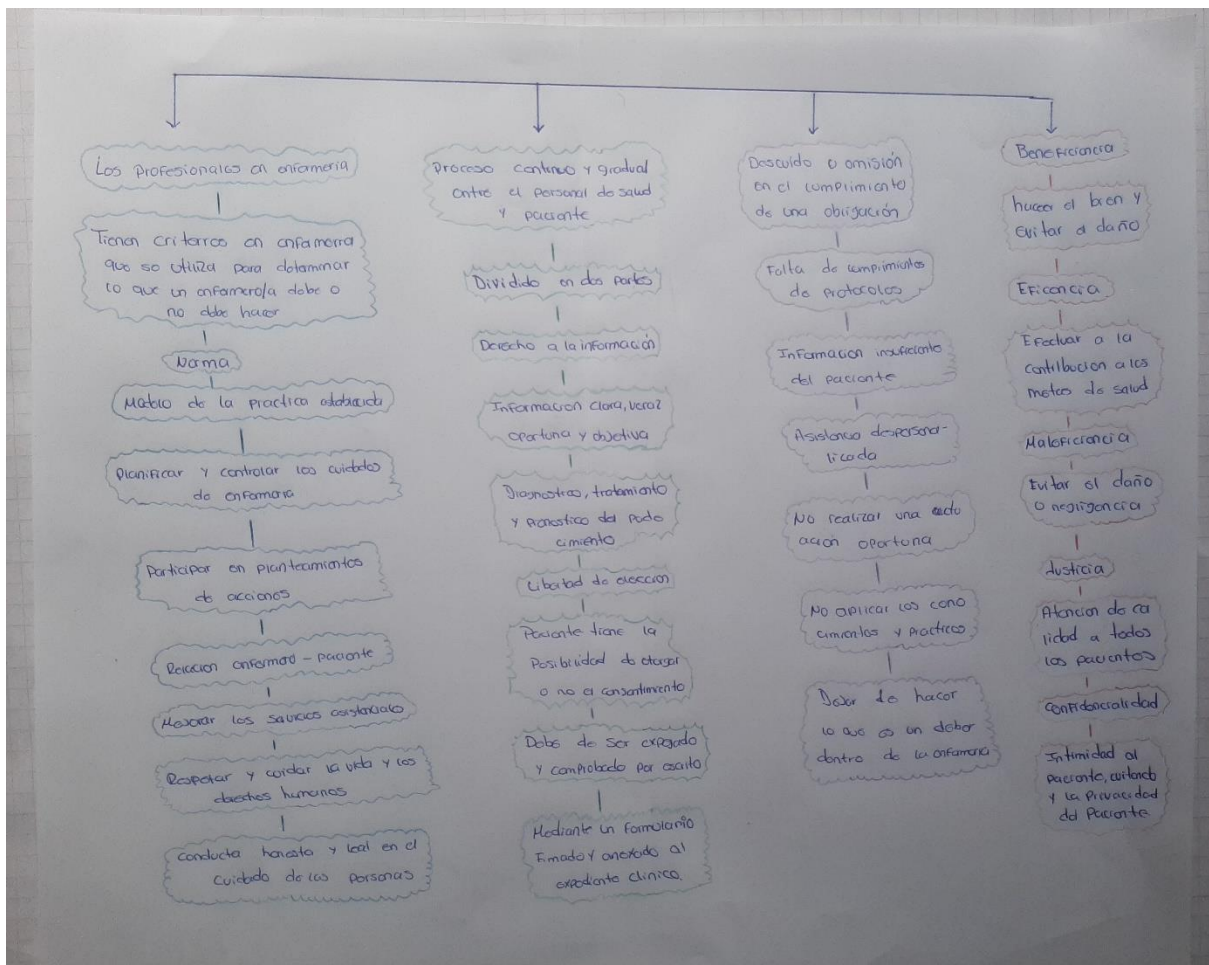 Los profesionales en enfermeria
Tienen criterios en enfermerra
que se utiliza para determinar
lo que un enfermero/a debe o
no debe hacer
Norma
de la practica establecida
Planificar y controlar los cuidados
de enfermeria
Participar en planteamientos
de acciones
Relacion enfermero - paciente
Mejorar los servicios asistenciales
Respetar y cuidar la vida y los
derechos humanos
conducta honesta y leal en el
cuidado de las personas
Proceso continuo y gradual
entre el personal de salud
y paciente
Dividido en dos partes
Derecho a la información
Informacion clara, veraz
oportuna y objetiva
Diagnostico, tratamiento
y pronostico del pade
cimiento
Libertad de eleccion
Paciente tiene la
Posibilidad de otorgar
o no el consentimiento
Debe de ser expresado
y comprobado por escrito
Mediante un formulario
firmado y anexado al
expediente clinico.
Descuido o omisión
en el cumplimiento
de una obligación
Falta de cumplimientos
de protocolos
Informacion insuficiente
del paciente
Asistencia despersona-
licada
No realizar una
acción oportuna
No aplicar los cono
cimientos y practicos
Dejar de hacer
lo que es un deber
dentro de la enfermeria
Beneficiencia
hacer el bien y
evitar a daño
Eficencia
Efectuar a la
contilbucion a los
metas de salud
Maleficiencia
Evitar el daño
o negligencia
Justicia
Atencion de ca
lidad a todos
los pacientes
confidencialidad
Intimidad al
paciente, evitando
y la Privacidad
del Paciente